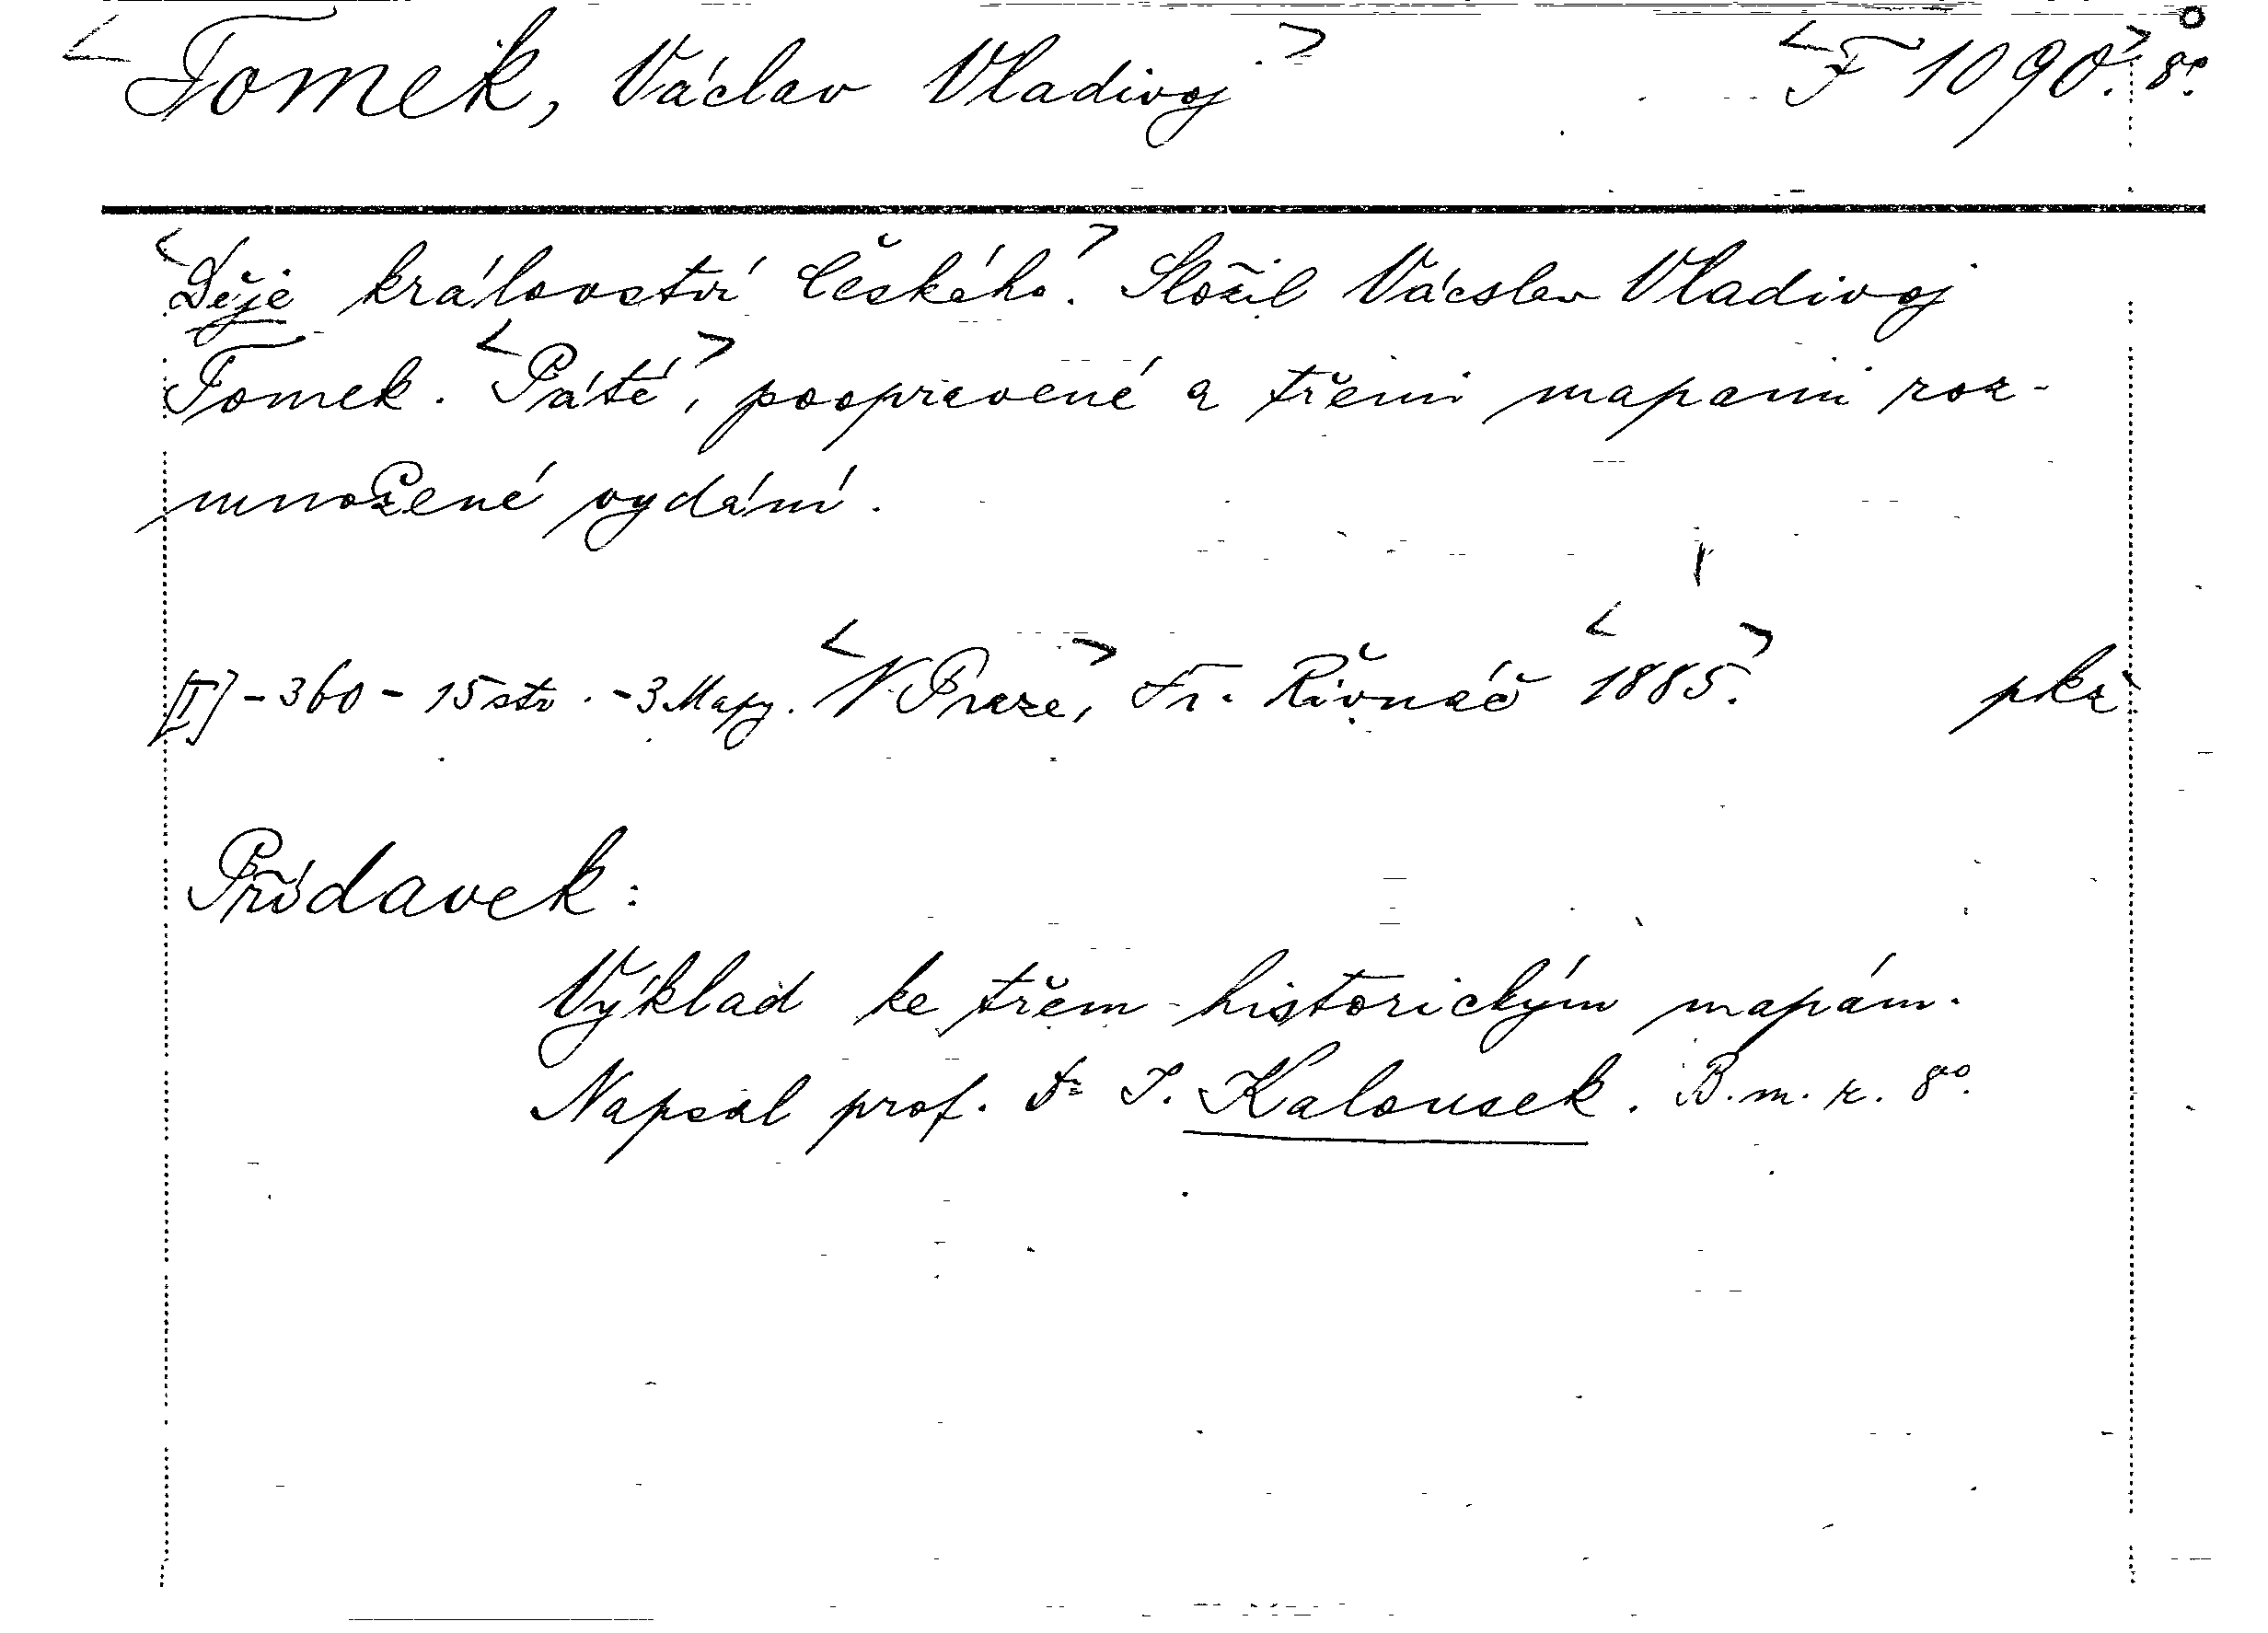 <Tomek, Václav Vladivoj> <F 1090.> 8º.
<Děje království českého.> Složil Vácslav Vladivoj
Tomek. <Páté>, poopravené a třemi mapami roz-
množené vydání.
[I] - 360 - 15 str. - 3 Mapy. <V Praze,> Fr. Řivnáč <1885.> pkz
Přídavek:
Výklad ke třem historickým mapám.
Napsal prof. Dr J. Kalousek. B. m. r. 8º.